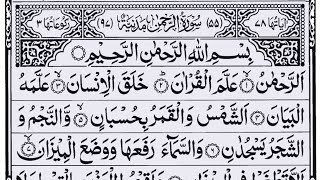 اٰیَاتُهَا ۷۸ (۵۵) سُوْرَةُ الرَّحْمٰنِ مَدَنِيَّةٌ (۹۷) رُكُوْعَاتُهَا ۳
بِسْمِ اللّٰهِ الرَّحْمٰنِ الرَّحِيْمِ
اَلرَّحْمٰنُ ۙ﴿۱﴾ عَلَّمَ الْقُرْاٰنَ ؕ﴿۲﴾ خَلَقَ الْاِنْسَانَ ۙ﴿۳﴾ عَلَّمَهُ
الْبَيَانَ ﴿۴﴾ اَلشَّمْسُ وَالْقَمَرُ بِحُسْبَانٍ ﴿۵﴾ وَّالنَّجْمُ وَ
الشَّجَرُ يَسْجُدٰنِ ﴿۶﴾ وَالسَّمَآءَ رَفَعَهَا وَوَضَعَ الْمِيْزَانَ ۙ﴿۷﴾